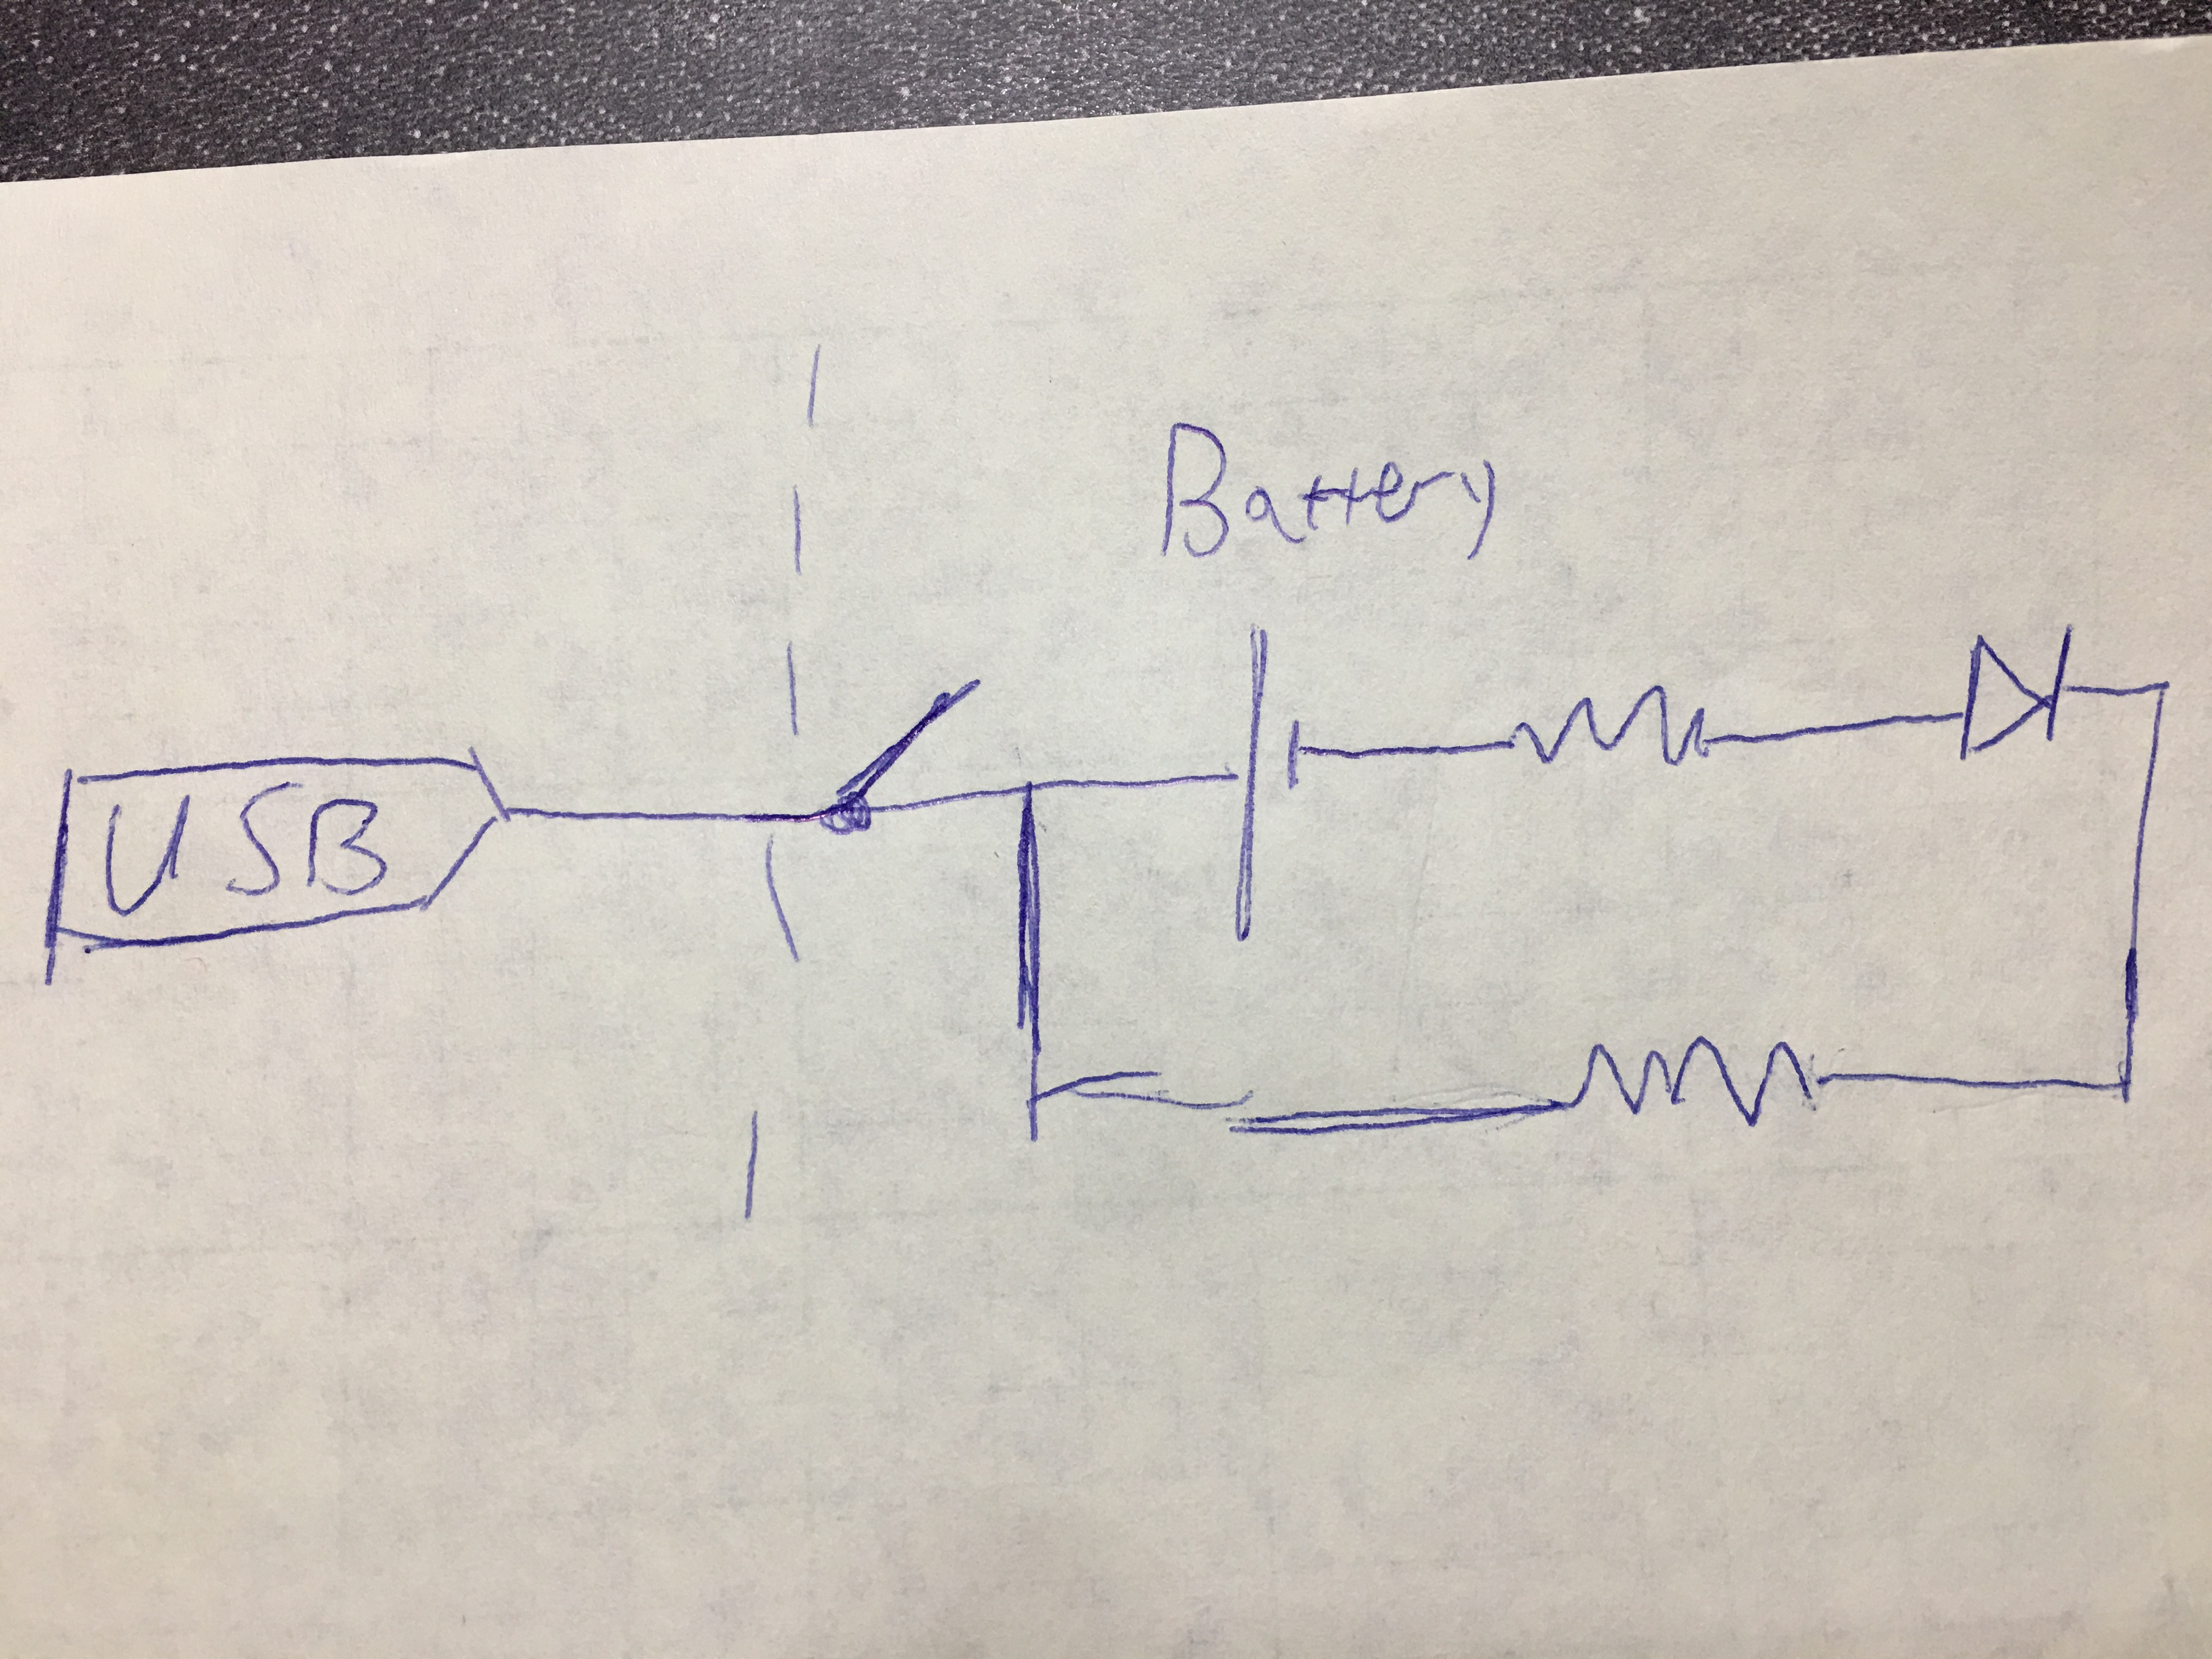 USB
Battery